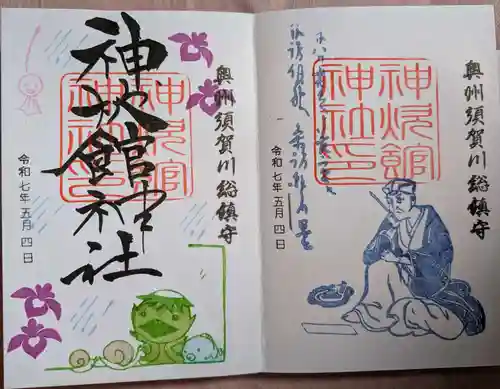 奥州須賀川総鎮守
神炊館神社
神炊館
神社印
令和七年五月四日
奥州須賀川総鎮守
神炊館
神社印
令和七年五月四日